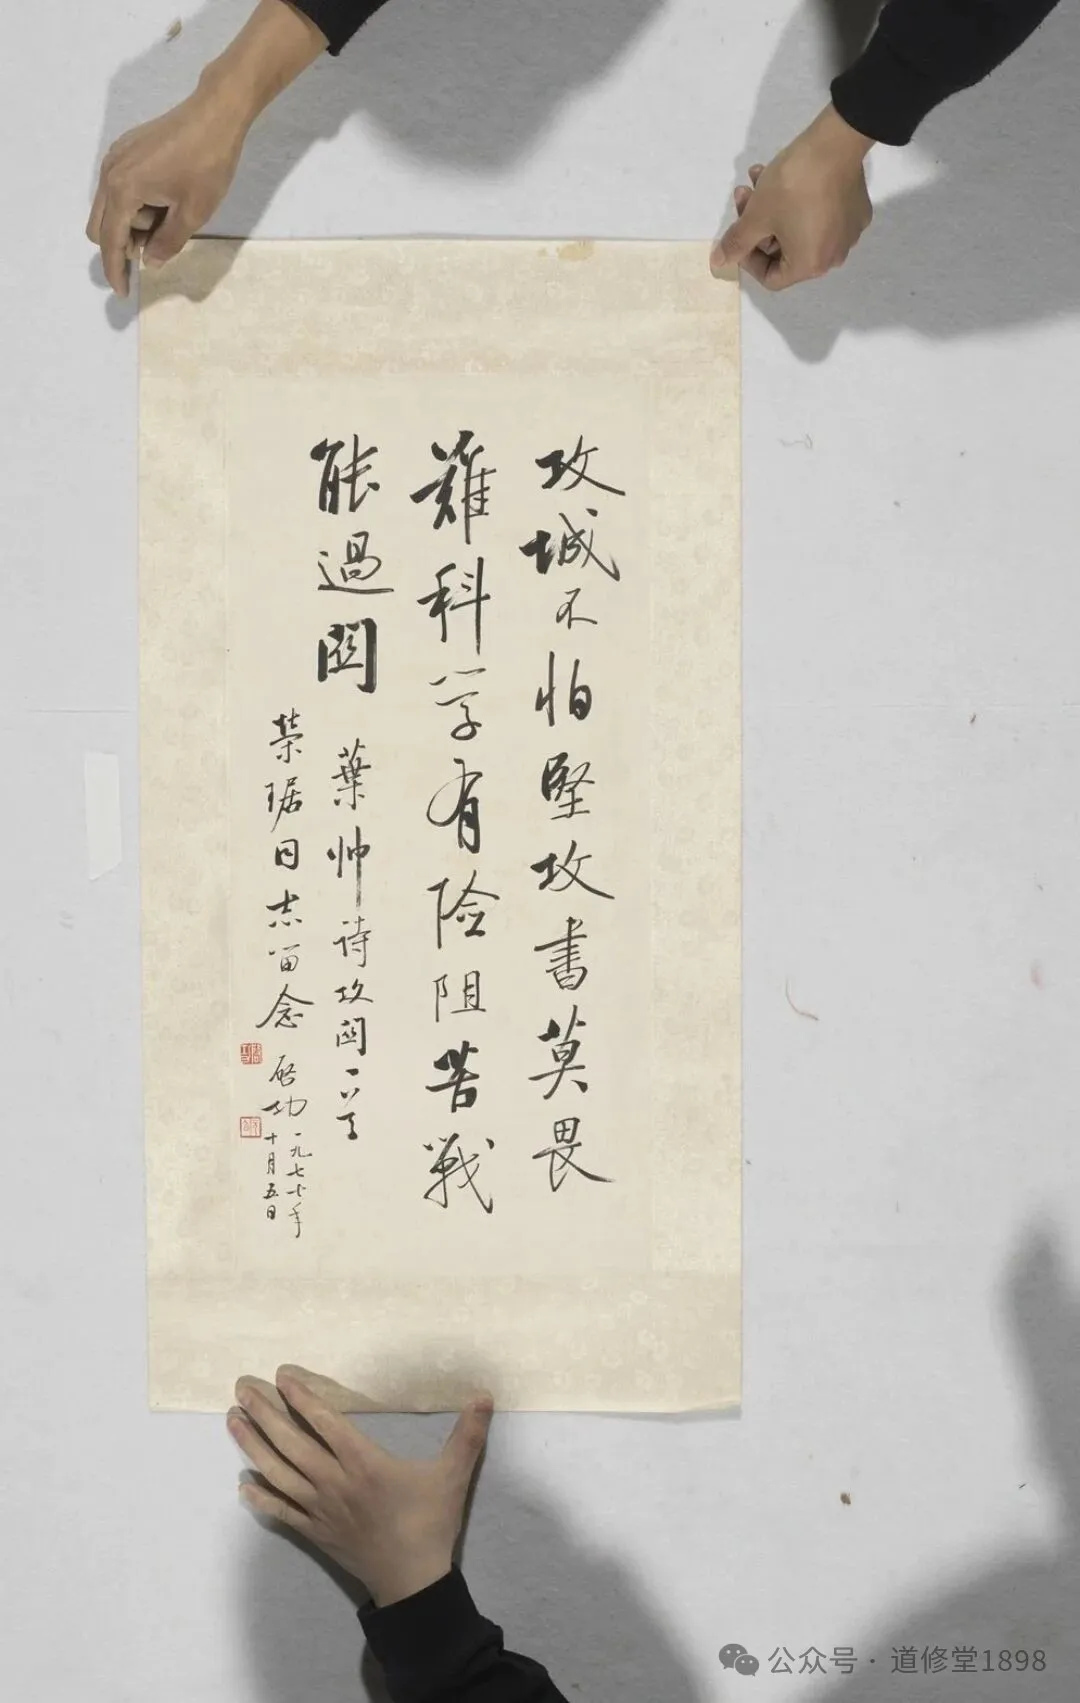 攻城不怕堅攻書莫畏
難科学有险阻苦戰
能過関
葉帅诗攻関一首
荣琚同志留念
启功
一九七七年
十月五日
公众号·道修堂1898